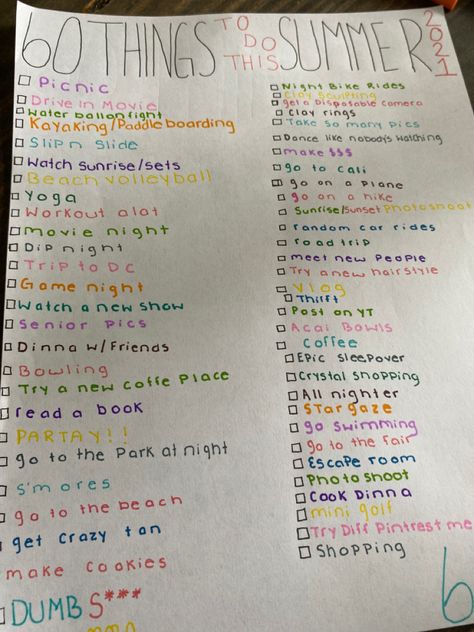 60 THINGS TO DO THIS SUMMER 2021
Picnic
Drive in Movie
Water ballon fight
Kayaking/Paddle boarding
Slip n Slide
Watch Sunrise/sets
Beach volleyball
Yoga
Workout alot
movie night
Dip night
Trip to DC
Game night
Watch a new show
Senior pics
Dinna w/Friends
Bowling
Try a new coffe Place
read a book
PARTAY!!
go to the Park at night
S'mores
go to the beach
get crazy tan
make cookies
DUMB S***
Night Bike Rides
Clay Sculpting
get a Disposable camera
Clay rings
Take so many pics
Dance like nobody's watching
make $$$
go to cali
go on a plane
go on a hike
Sunrise/Sunset Photoshoot
random car rides
road trip
meet new people
Try a new hairstyle
Vlog
Thrift
Post on YT
Acai Bowls
Coffee
Epic Sleepover
Crystal Shopping
All nighter
Star gaze
go swimming
go to the fair
Escape room
Photoshoot
Cook Dinna
mini golf
Try Diff Pintrest me
Shopping